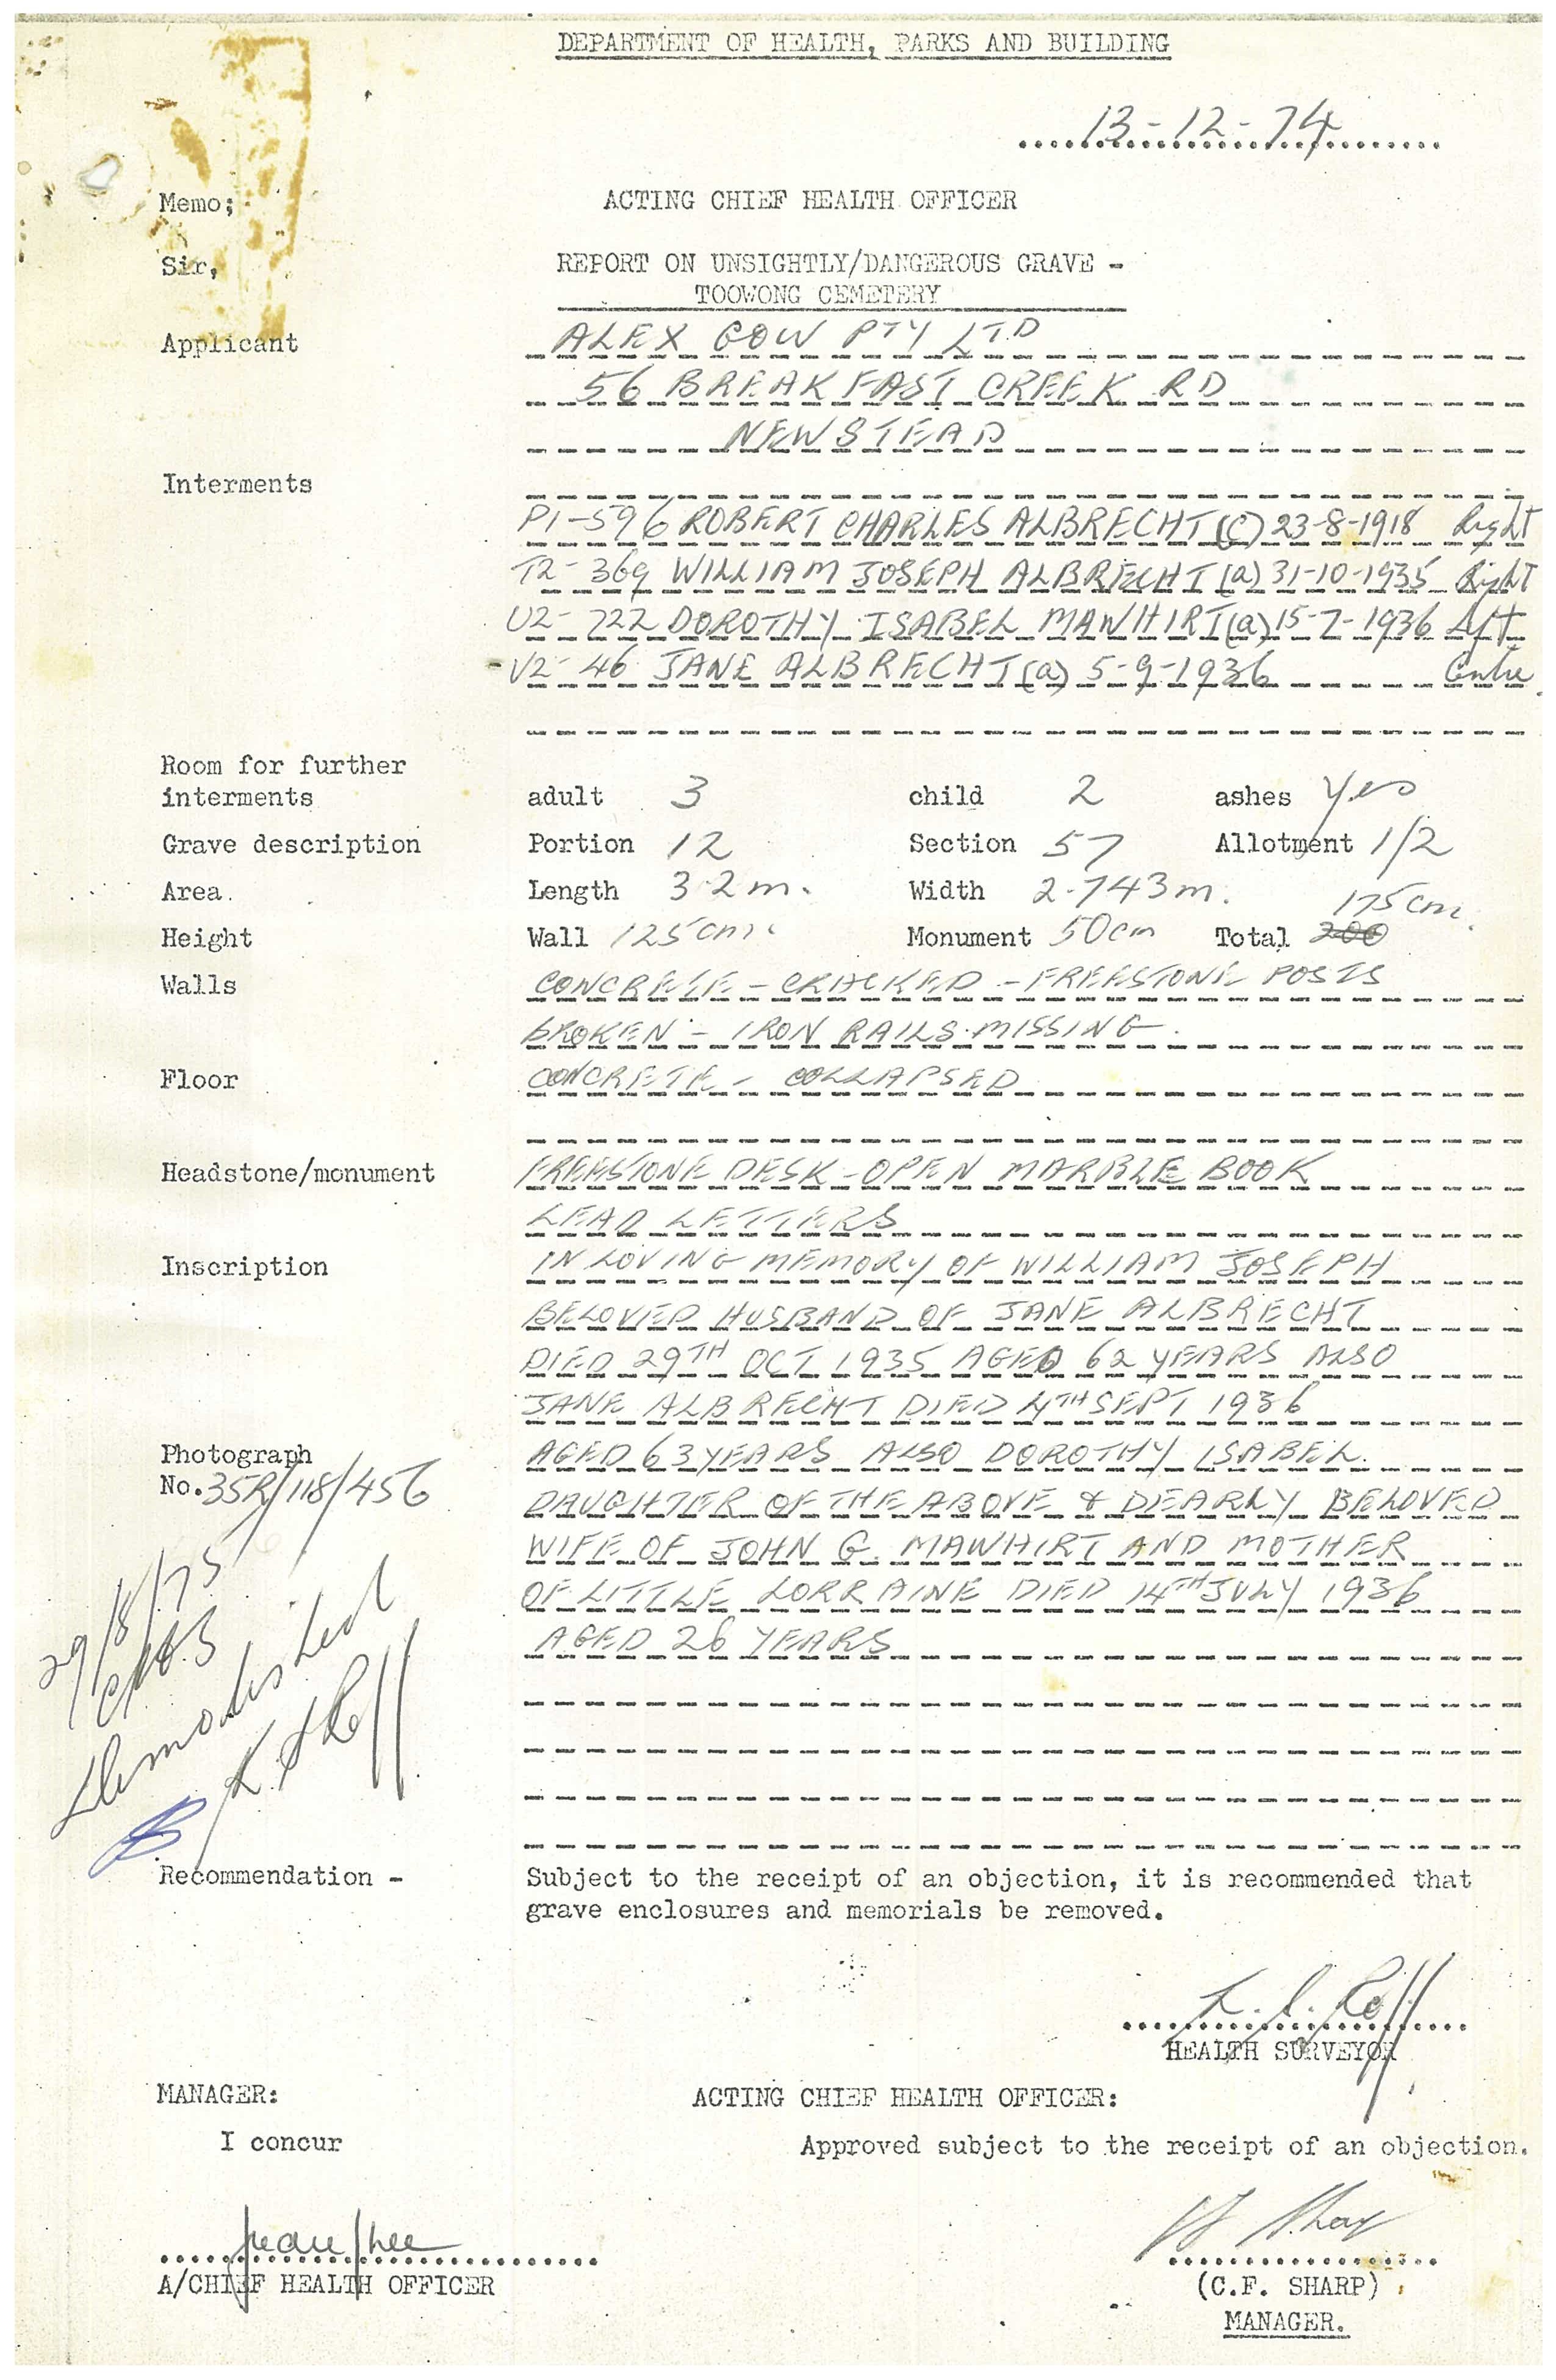 DEPARTMENT OF HEALTH, PARKS AND BUILDING
13-12-74
Memo; ACTING CHIEF HEALTH OFFICER
Sir, REPORT ON UNSIGHTLY/DANGEROUS GRAVE -
TOOWONG CEMETERY
Applicant ALEX GOW PTY LTD
56 BREAKFAST CREEK RD
NEWSTEAD
Interments
P1-596 ROBERT CHARLES ALBRECHT (C) 23-8-1918 Right
T2-369 WILLIAM JOSEPH ALBRECHT (a) 31-10-1935 Right
U2-722 DOROTHY ISABEL MAWHIRT (a) 15-7-1936 Left
V2-46 JANE ALBRECHT (a) 5-9-1936 Centre
Room for further
interments adult 3 child 2 ashes Yes
Grave description Portion 12 Section 57 Allotment 1/2
Area. Length 3.2m. Width 2.743m.
175cm.
Height Wall 125cm. Monument 50cm Total 200
Walls CONCRETE - CRACKED - FREESTONE POSTS
BROKEN - IRON RAILS MISSING.
Floor CONCRETE - COLLAPSED
Headstone/monument FREESTONE DESK - OPEN MARBLE BOOK
LEAD LETTERS
Inscription IN LOVING MEMORY OF WILLIAM JOSEPH
BELOVED HUSBAND OF JANE ALBRECHT
DIED 29TH OCT 1935 AGED 62 YEARS ALSO
JANE ALBRECHT DIED 4TH SEPT 1936
Photograph AGED 63 YEARS ALSO DOROTHY ISABEL.
No. 35R/118/456 DAUGHTER OF THE ABOVE & DEARLY BELOVED
WIFE OF JOHN G. MAWHIRT AND MOTHER
OF LITTLE LORRAINE DIED 14TH JULY 1936
AGED 26 YEARS
29/8/75
Demolished
Recommendation - Subject to the receipt of an objection, it is recommended that
grave enclosures and memorials be removed.
HEALTH SURVEYOR
MANAGER: ACTING CHIEF HEALTH OFFICER:
I concur Approved subject to the receipt of an objection.
A/CHIEF HEALTH OFFICER (C.F. SHARP)
MANAGER.